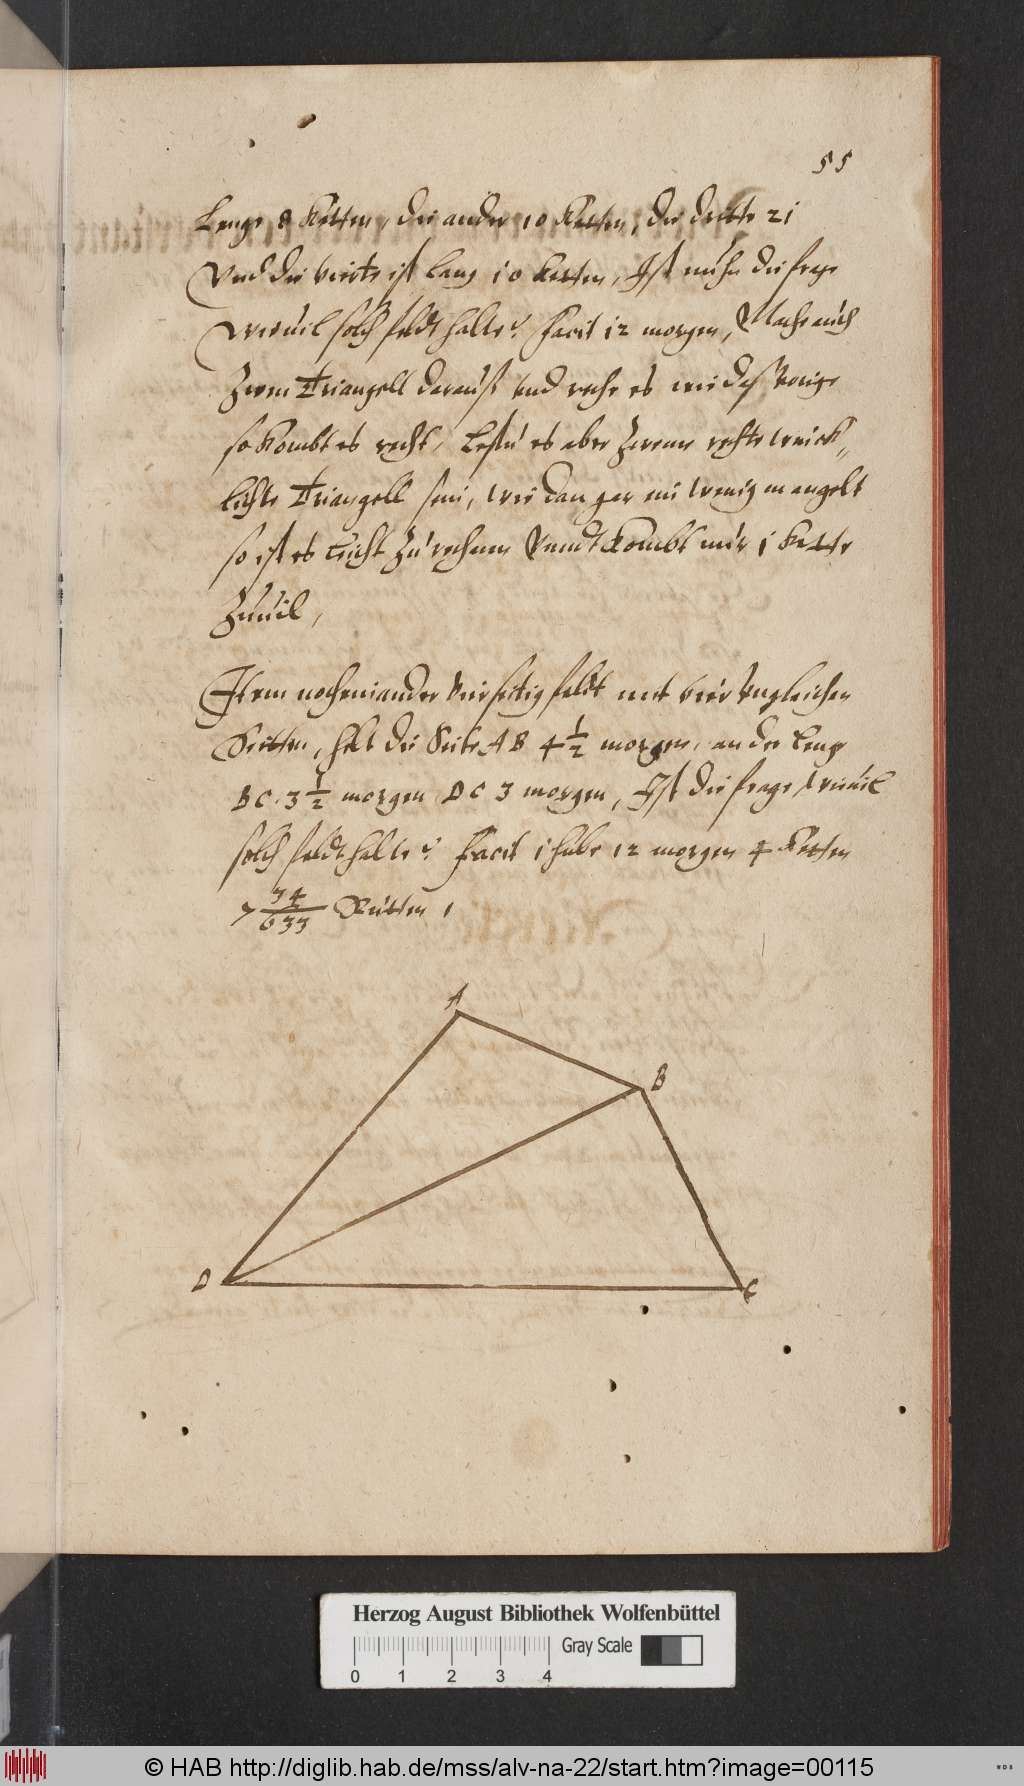 55
Lenge 8 Ketten, die ander 10 Ketten, die dritte 21
Vnd die vierte ist lang 10 Ketten, Ist nuhn die frage
wieuil solch feldt halte? Facit 12 morgen, Mache auch
Zwen Triangell darauß vnd rechne es wie daß vorige
so kombt es recht, Lestu es aber Zweene rechte winck„
lichte Triangell sein, wie dan gar ein wenig mangelt
so ist es leicht Zu rechnen Vnndt kombt nur 1 Kette
Zuuil,
Item noch ein ander Vierseitig feldt mit vier vngleichen
Seitten, helt die Seite AB 4 1/2 morgen, an der leng
BC. 3 1/2 morgen DC 3 morgen, Ist die frage, wieuil
solch feldt halte? Facit 1 hube 12 morgen 4 Ketten
7 34/633 Rutten 1
A
B
D
C
Herzog August Bibliothek Wolfenbüttel
Gray Scale
0 1 2 3 4
© HAB http://diglib.hab.de/mss/alv-na-22/start.htm?image=00115